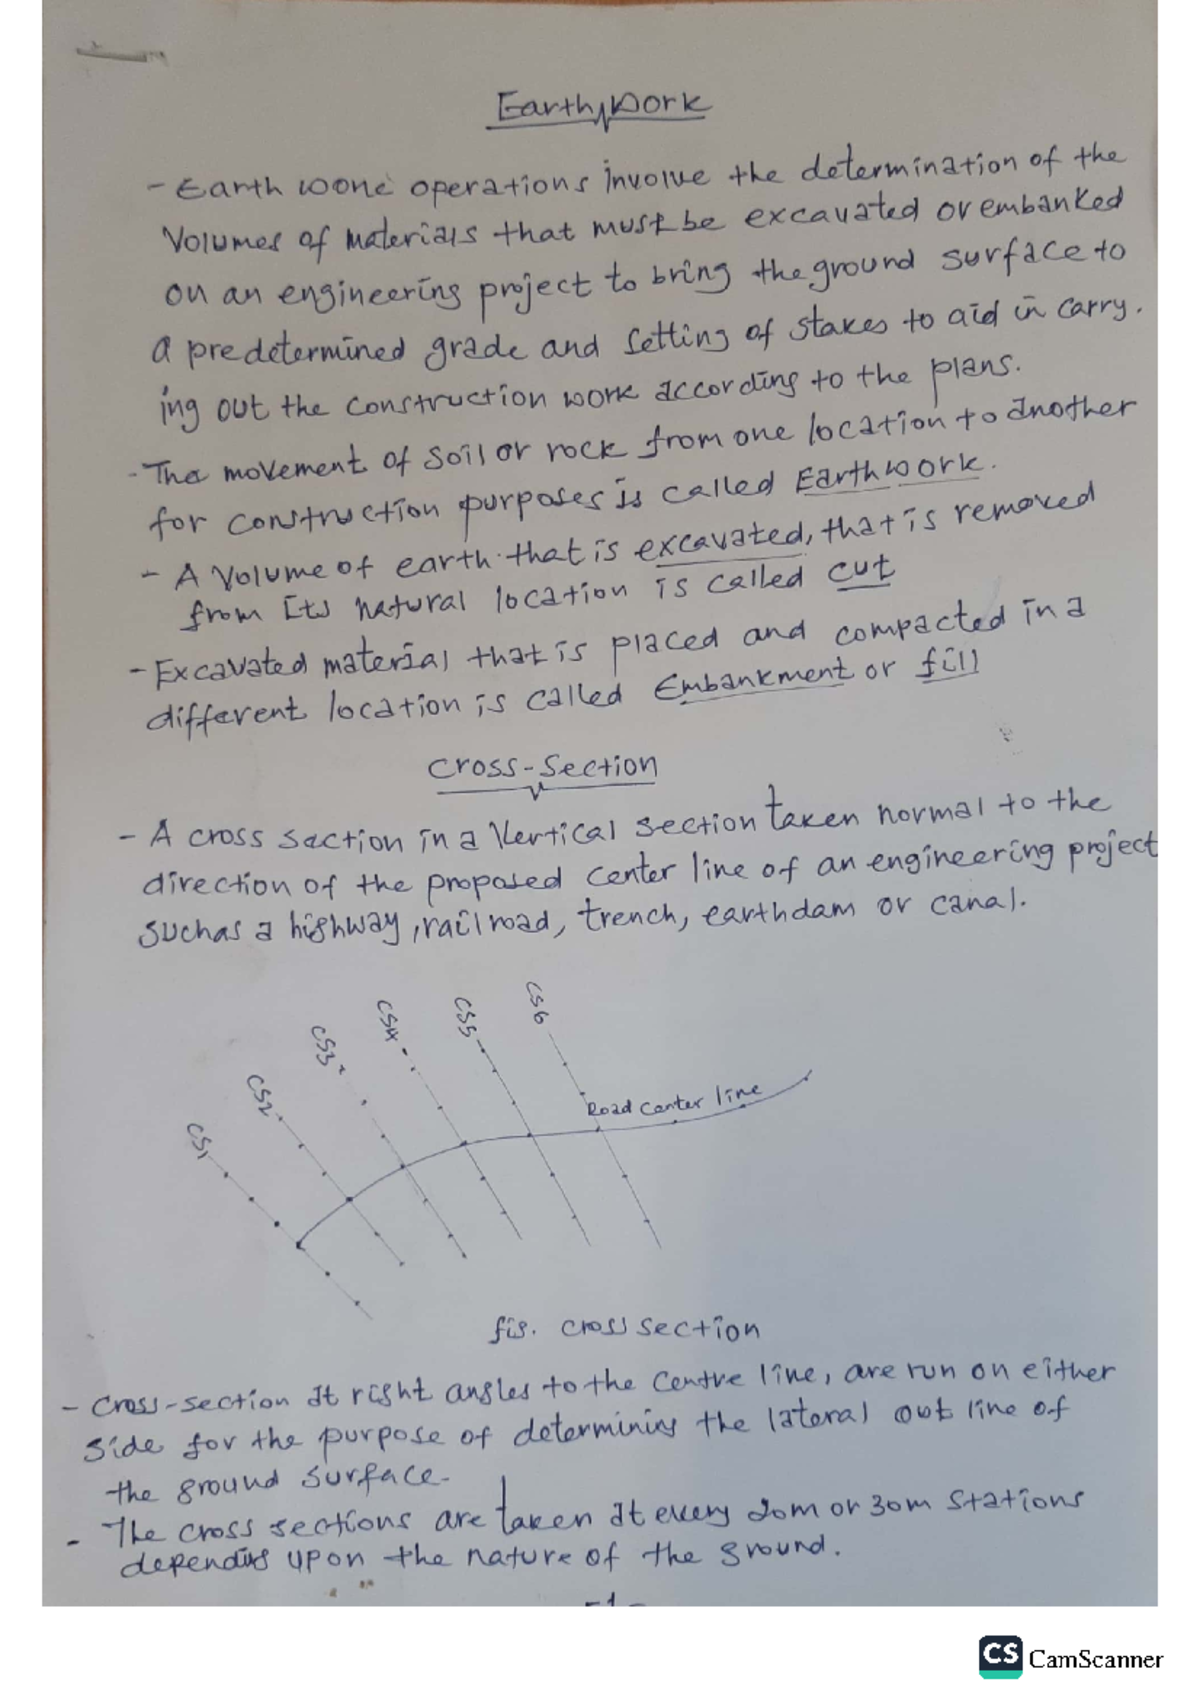 Earth work
- Earth wone operations involve the determination of the
volumes of materials that must be excavated or embanked
on an engineering project to bring the ground surface to
a predetermined grade and setting of stakes to aid in carry.
ing out the construction work according to the plans.
- The movement of soil or rock from one location to another
for construction purposes is called Earthwork.
- A volume of earth that is excavated, that is removed
from its natural location is called cut
- Excavated material that is placed and compacted in a
different location is called Embankment or fill
Cross-Section
- A cross section in a Vertical section taken normal to the
direction of the proposed center line of an engineering project
suchas a highway, railroad, trench, earthdam or canal.
CS1
CS2
CS3
CS4
CS5
CS6
Road center line
fig. cross section
- Cross-section at right angles to the centre line, are run on either
side for the purpose of determining the lateral out line of
the ground surface.
- The cross sections are taken at every 20m or 30m stations
depending upon the nature of the ground.
-1-
CS CamScanner